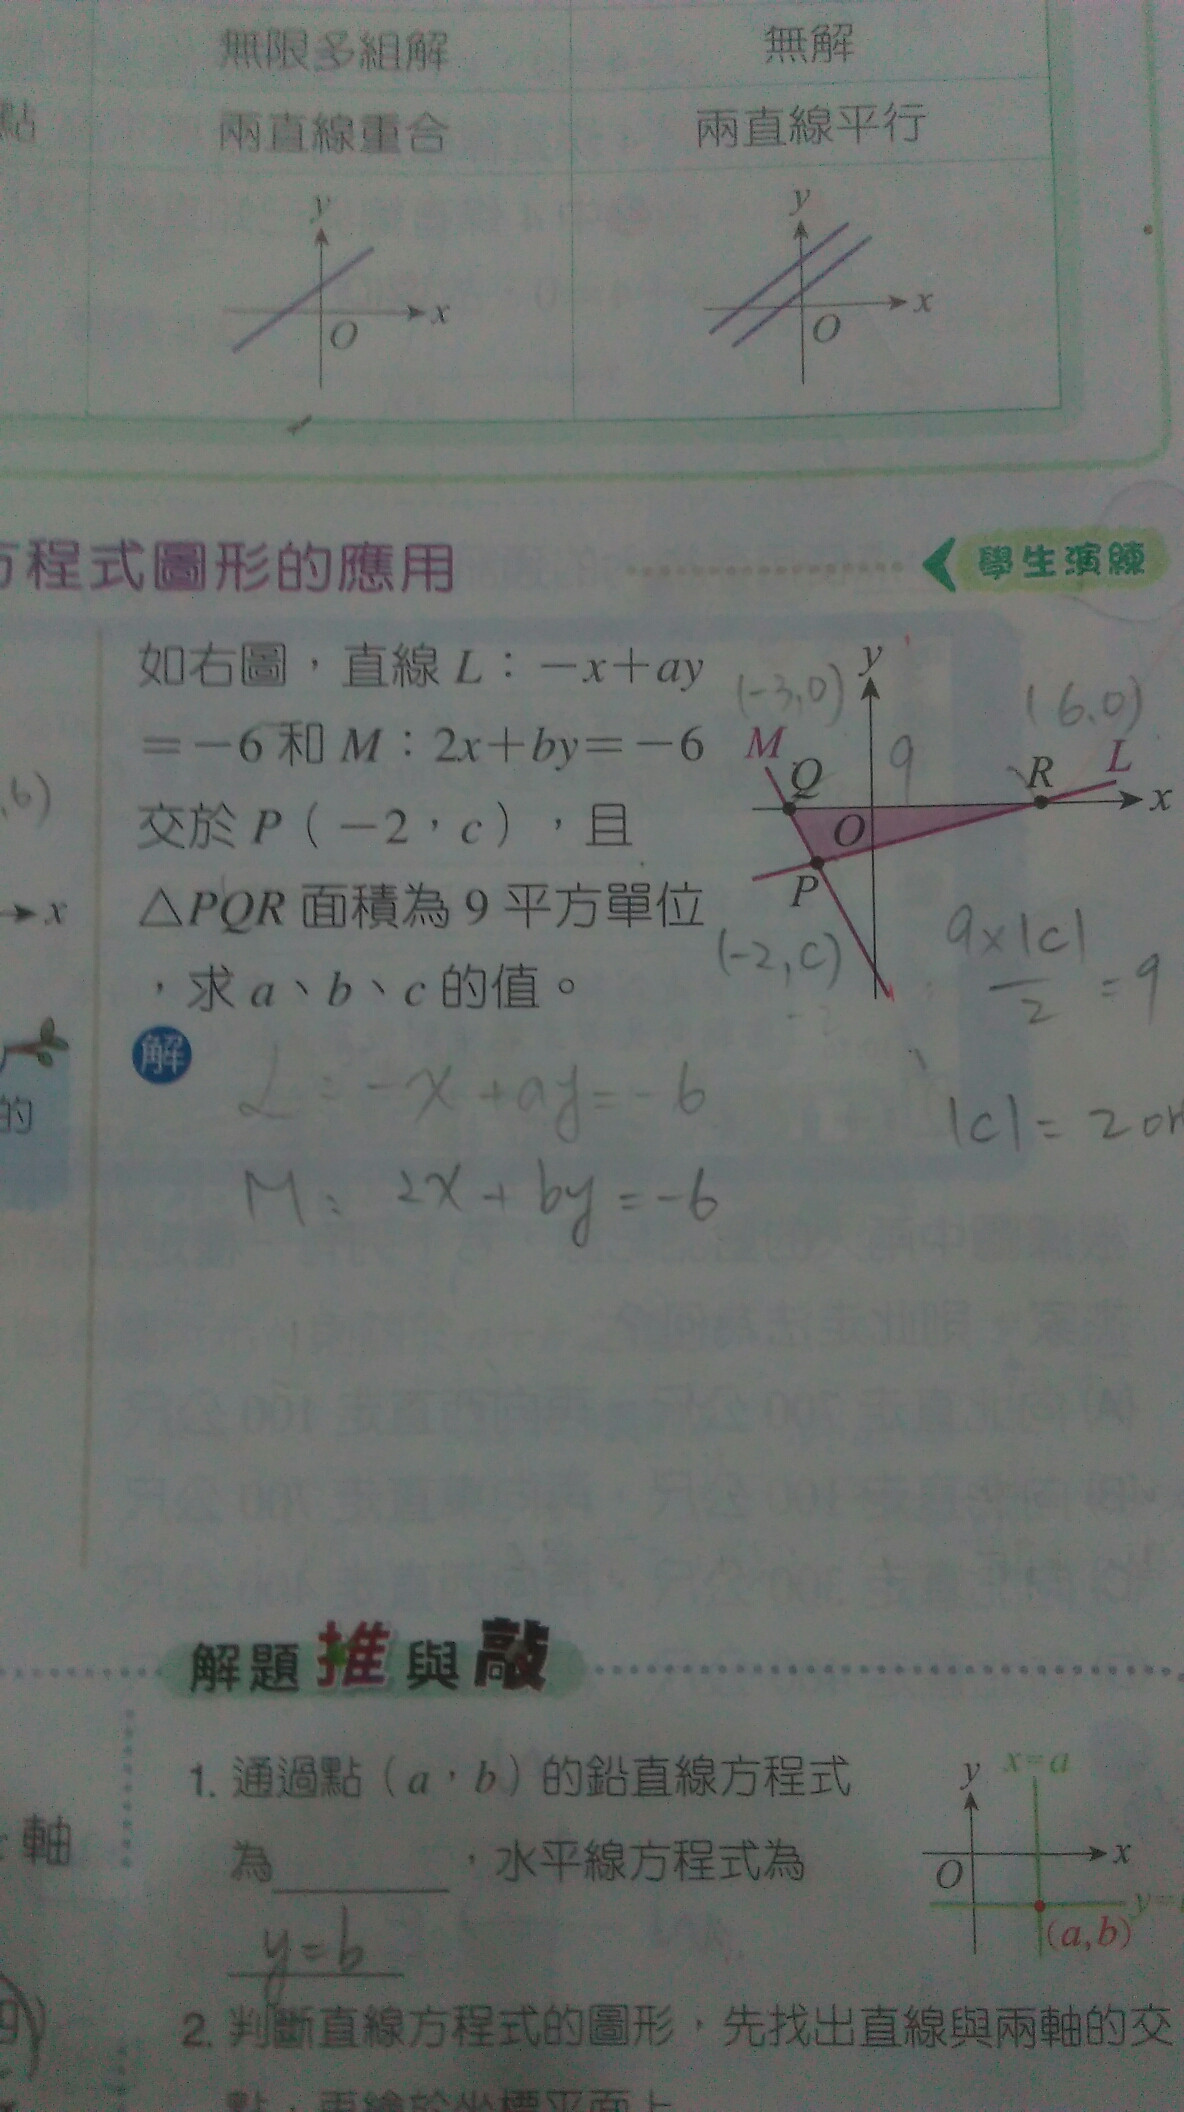 無限多組解
無解
點
兩直線重合
兩直線平行
y
x
O
y
x
O
方程式圖形的應用
學生演練
如右圖，直線 L：－x＋ay
＝－6 和 M：2x＋by＝－6
交於 P（－2，c），且
△PQR 面積為 9 平方單位
，求 a、b、c 的值。
(-3,0)
y
(6,0)
M
Q
9
R
L
x
O
P
(-2,C)
9×|c|
2
=9
,6)
x
的
解
L: -x+ay=-6
M: 2x+by=-6
|c|=2 or
解題推與敲
1. 通過點（a，b）的鉛直線方程式
為 ，水平線方程式為
y=b
y
x=a
x
O
(a,b)
軸
2. 判斷直線方程式的圖形，先找出直線與兩軸的交
點，再繪於坐標平面上